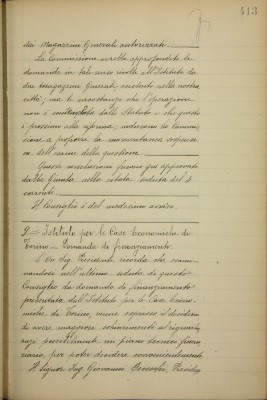 413
dai Magazzini Generali autorizzati.
La Commissione avrebbe approfondito la
domanda in tal senso rivolta all'Istituto da
due Magazzini Generali esistenti nella nostra
città, ma la circostanza che l'operazione
non è contemplata dallo Statuto e che questo
è prossimo alla riforma, indussero la Commis-
sione a proporre la momentanea sospensi-
va dell'esame della questione.
Questa risoluzione fu approvata
dalla Giunta nella seduta del 4
corrente.
Il Consiglio è del medesimo avviso.
9= Istituto per le Case Economiche di
Torino - Domanda di finanziamento.
L'On. Sig. Presidente ricorda che esami-
nandosi nell'ultima seduta di questo
Consiglio la domanda di finanziamento
presentata dall'Istituto per le Case Econo-
miche di Torino, venne espresso il desiderio
di avere maggiori schiarimenti al riguardo,
possibilmente un piano tecnico finan
ziario, per poter decidere convenientemente.
Il Signor Ing. Giovanni